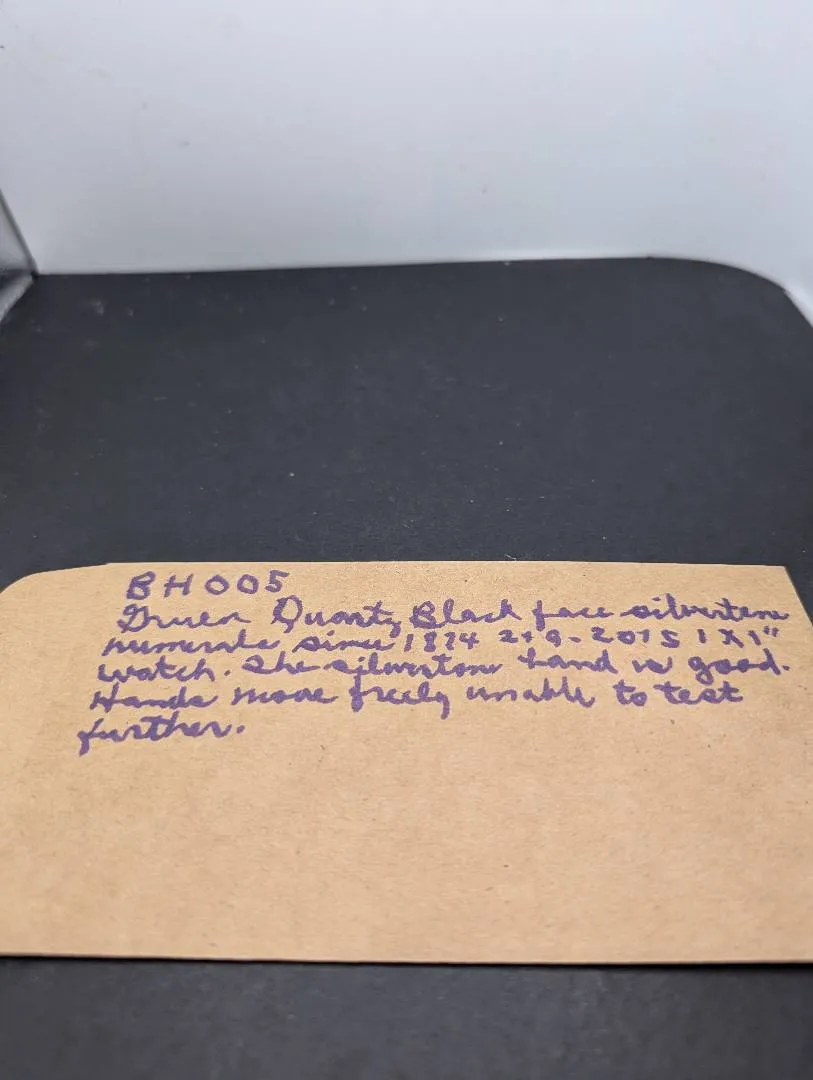 BH005
Gruen Quartz Black face silvertone
numerals since 1874 219-2075 1X1"
watch. The silvertone band is good.
Hands move freely unable to test
further.